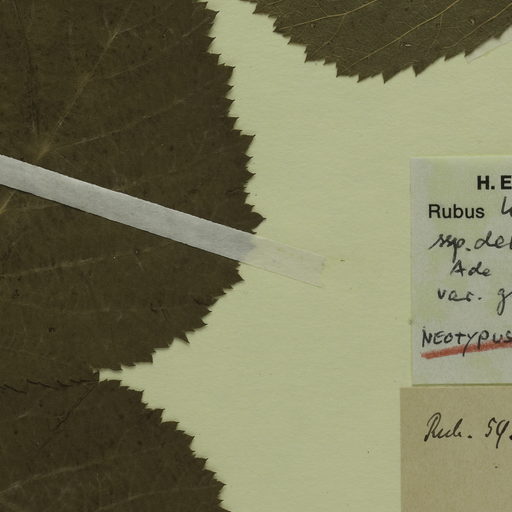 H. E
Rubus
ssp. de
Ade
var. g
NEOTYPUS
Rub. 59